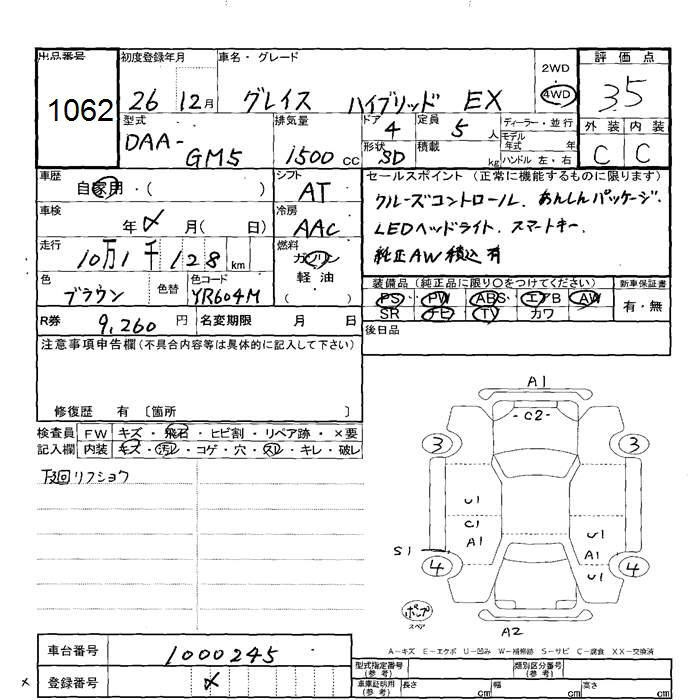 出品番号
1062
初度登録年月
26 12月
車名・グレード
グレイス ハイブリッド EX
2WD
4WD
評価点
3.5
外装 内装
C C
型式
DAA-
GM5
排気量
1500 cc
ドア
4
定員
5 人
形状
SD
積載
kg
ディーラー・並行
モデル年式 年
ハンドル 左・右
車歴
自家用・( )
シフト
AT
車検
年 メ 月( 日)
冷房
AAC
走行
10万1千128 km
燃料
ガソリン
軽油
( )
色
ブラウン
色替
色コード
YR604M
セールスポイント (正常に機能するものに限ります)
クルーズコントロール、あんしんパッケージ、
LEDヘッドライト、スマートキー、
純正AW積込有
装備品 (純正品に限り○をつけてください)
PS・ PW ABS・ エアB AW
SR ナビ TV カワ
新車保証書
有・無
R券 9,260 円
名変期限 月 日
後日品
注意事項申告欄 (不具合内容等は具体的に記入して下さい)
修復歴 有 〔箇所 〕
検査員記入欄
FW キズ・飛石・ヒビ割・リペア跡・×要
内装 キズ・汚レ・コゲ・穴・スレ・キレ・破レ
下回リフショウ
A1
-C2-
3 3
U1
C1
A1
U1
A1
U1
S1
4 4
スペア
A2
A-キズ E-エクボ U-凹み W-補修跡 S-サビ C-腐食 XX-交換済
車台番号 1000245
登録番号 メ
型式指定番号(参考)
類別区分番号(参考)
車庫証明用(参考) 長さ cm 幅 cm 高さ cm
×